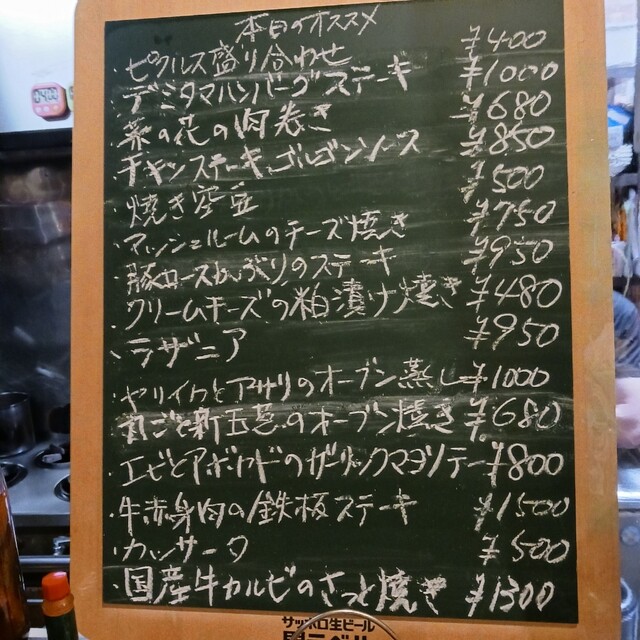 本日のオススメ
・ピクルス盛り合わせ ¥400
・デミタマハンバーグステーキ ¥1000
・菜の花の肉巻き ¥680
・チキンステーキ、ゴルゴンソース ¥850
・焼き空豆 ¥500
・マッシュルームのチーズ焼き ¥750
・豚ロースかぶりのステーキ ¥950
・クリームチーズの粕漬け焼き ¥480
・ラザニア ¥950
・ヤリイカとアサリのオーブン蒸し ¥1000
・丸ごと新玉葱のオーブン焼き ¥680
・エビとアボカドのガーリックマヨソテー ¥800
・牛赤身肉の鉄板ステーキ ¥1500
・カッサータ ¥500
・国産牛カルビのさっと焼き ¥1300
サッポロ生ビール
黒ラベル